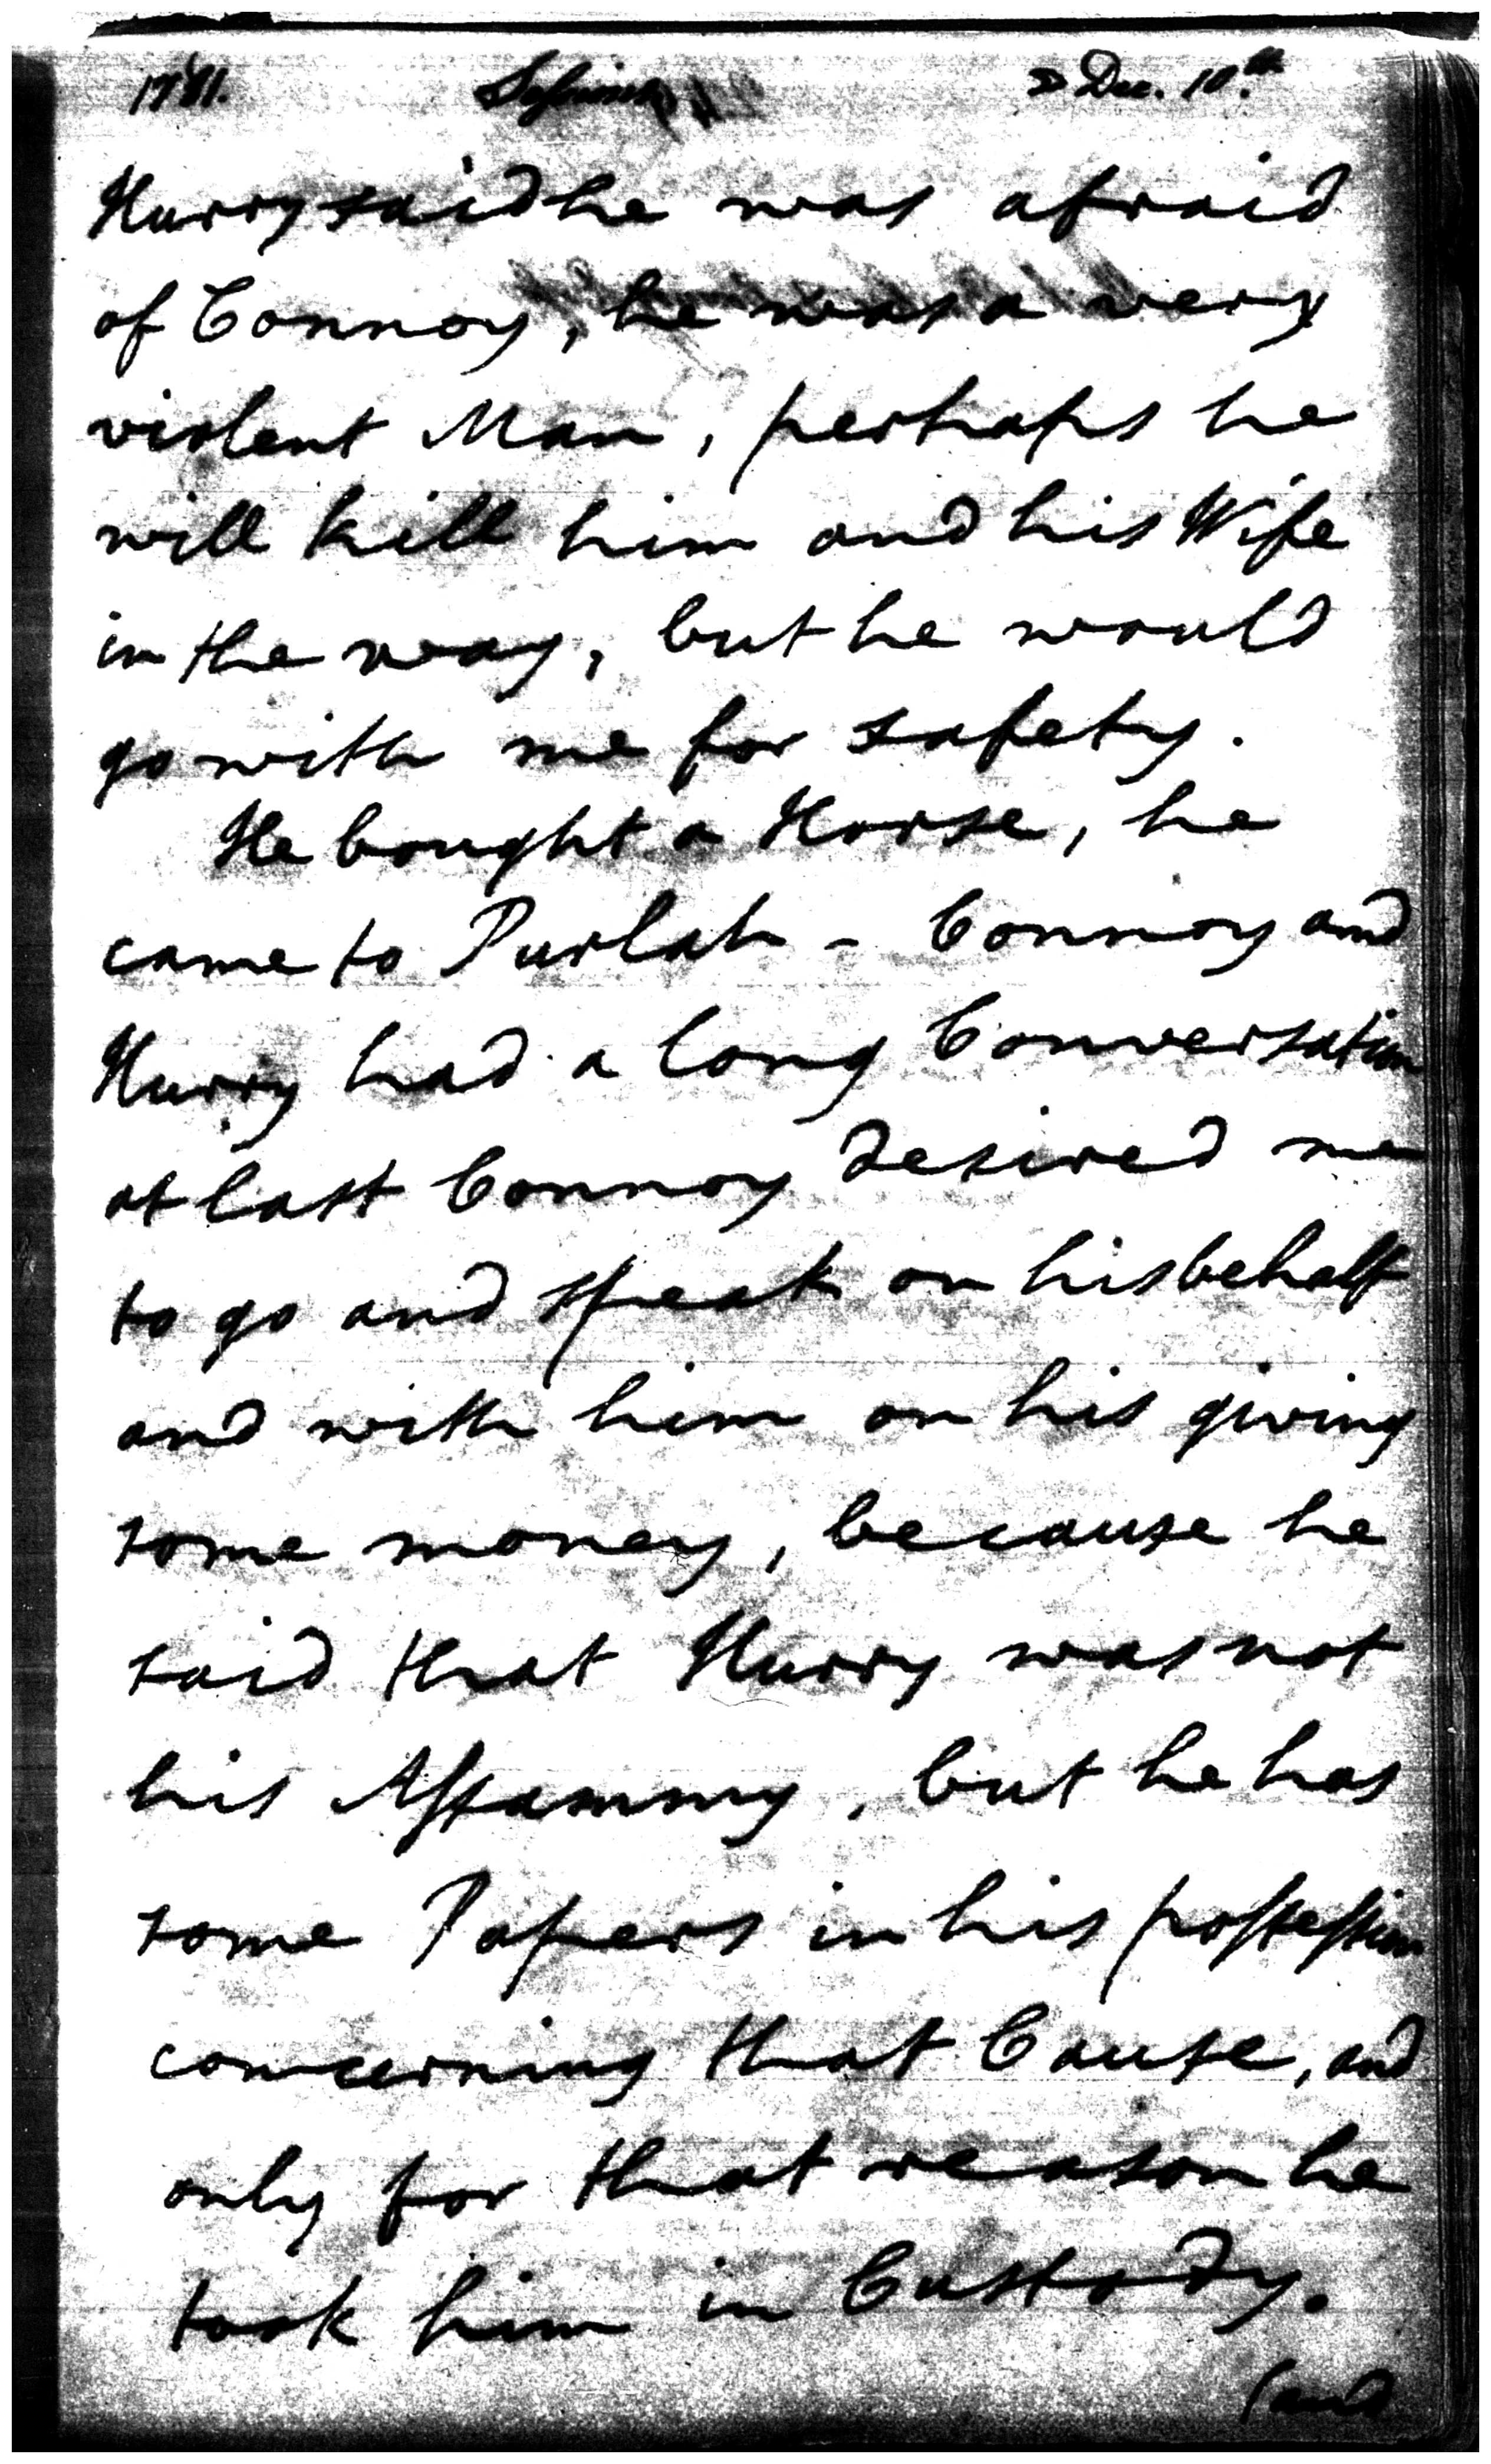 1781. Dec. 10th
Hurry said he was afraid
of Connoy, he was a very
violent Man, perhaps he
will kill him and his Wife
in the way, but he would
go with me for safety.
He bought a Horse, he
came to Purlah - Connoy and
Hurry had a long Conversation
at last Connoy desired me
to go and speak on his behalf
and with him on his giving
some money, because he
said that Hurry was not
his Assammy, but he has
some Papers in his possession
concerning that Cause, and
only for that reason he
took him in Custody.
(and